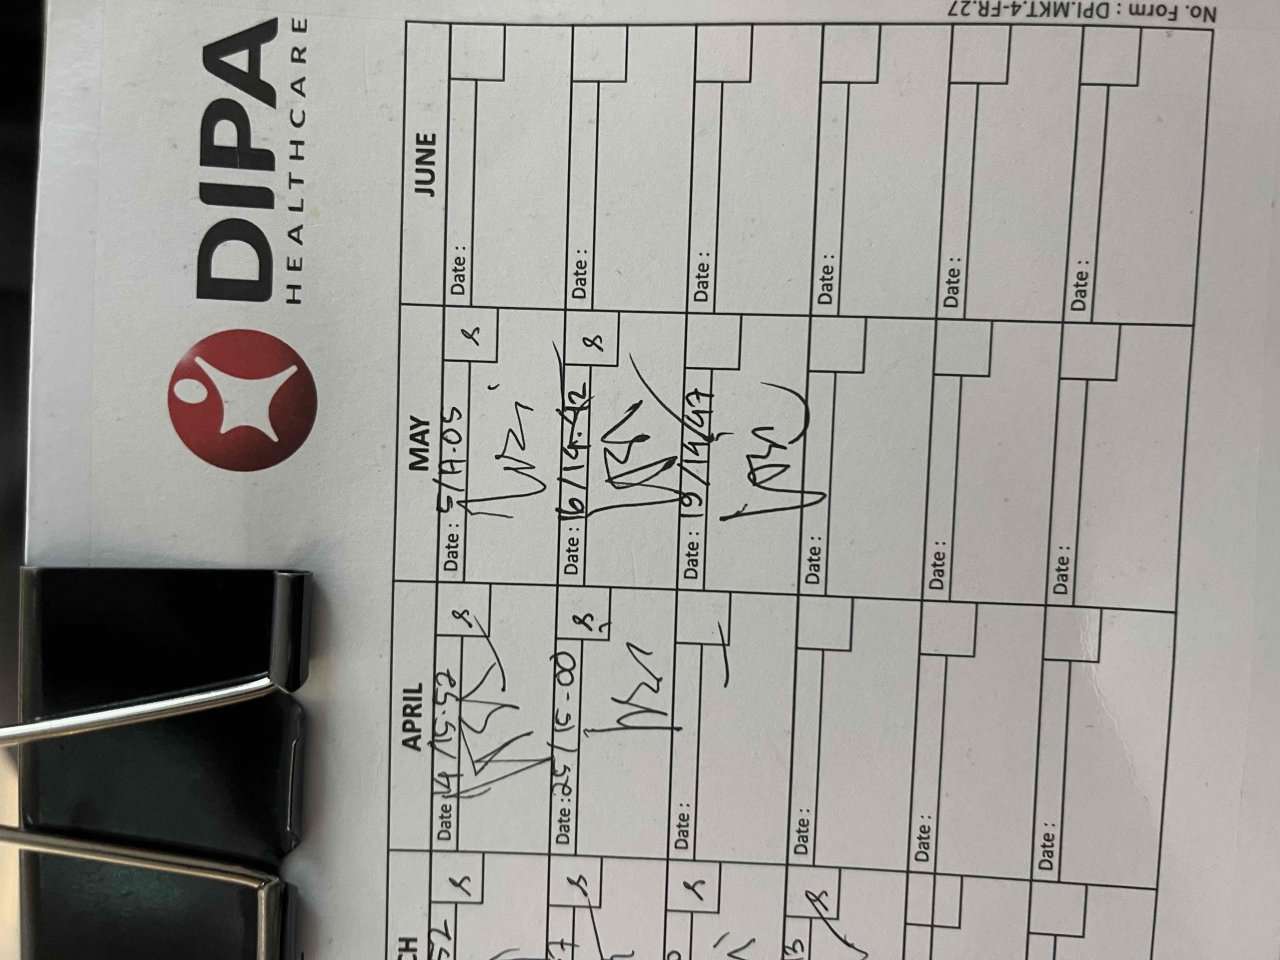 DIPA
HEALTHCARE
CH
APRIL
MAY
JUNE
52
Date : 14/15.52
Date : 5/17.05
Date :
7
Date : 25/15-00
Date : 16/14.42
Date :
Date :
Date : 19/14.47
Date :
3
Date :
Date :
Date :
Date :
Date :
Date :
Date :
Date :
Date :
No. Form : DPI.MKT.4-FR.27